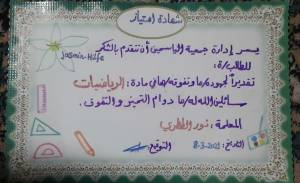 شهادة امتياز
Jasmin-Hilfe
يسر إدارة جمعية الياسمين أن تتقدم بالشكر
للطالب/ة:
تقديراً لجهوده/ها وتفوقه/ها في مادة: الرياضيات
سائلين الله له/ها دوام التميز والتفوق.
المعلمة: نور
التاريخ: 8-3-2021 التوقيع: